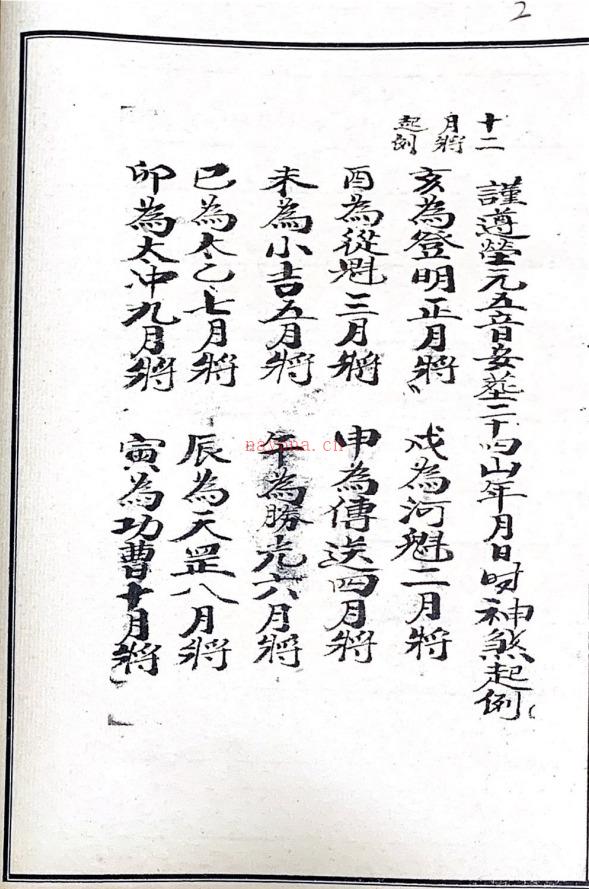 2
十二
月將
起例
謹遵瑩元五音安墓二十四山年月日时神煞起例
亥為登明正月將
戌為河魁二月將
酉為從魁三月將
申為傳送四月將
未為小吉五月將
午為勝光六月將
巳為太乙七月將
辰為天罡八月將
卯為太冲九月將
寅為功曹十月將
nayona.cn